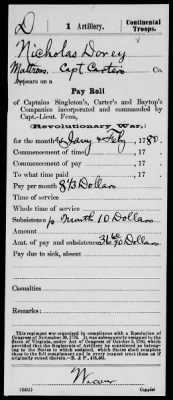 D | 1 Artillery. | Continental Troops.
Nicholas Dorey
Matross, Capt Carter's Co.
Appears on a
Pay Roll
of Captains Singleton's, Carter's and Baytop's
Companies incorporated and commanded by
Capt.-Lieut. Fenn,
(Revolutionary War,)
for the month of Jany & Feby, 1780.
Commencement of time , 17 .
Commencement of pay , 17 .
To what time paid , 17 .
Pay per month 8 1/3 Dollars
Time of service
Whole time of service
Subsistence p. month 10 Dollars
Amount
Amt. of pay and subsistence 36 60/90 Dollars
Pay due to sick, absent
Casualties
Remarks:
This regiment was organized in compliance with a Resolution of
Congress of November 26, 1776. It was subsequently assigned to the
State of Virginia, under Act of Congress of October 3, 1780, which
provided that the Regiments of Artillery be considered as belong-
ing to the States to which assigned, which States shall complete
them to the full complement and in every respect treat them as if
originally raised therein.
Copyist.